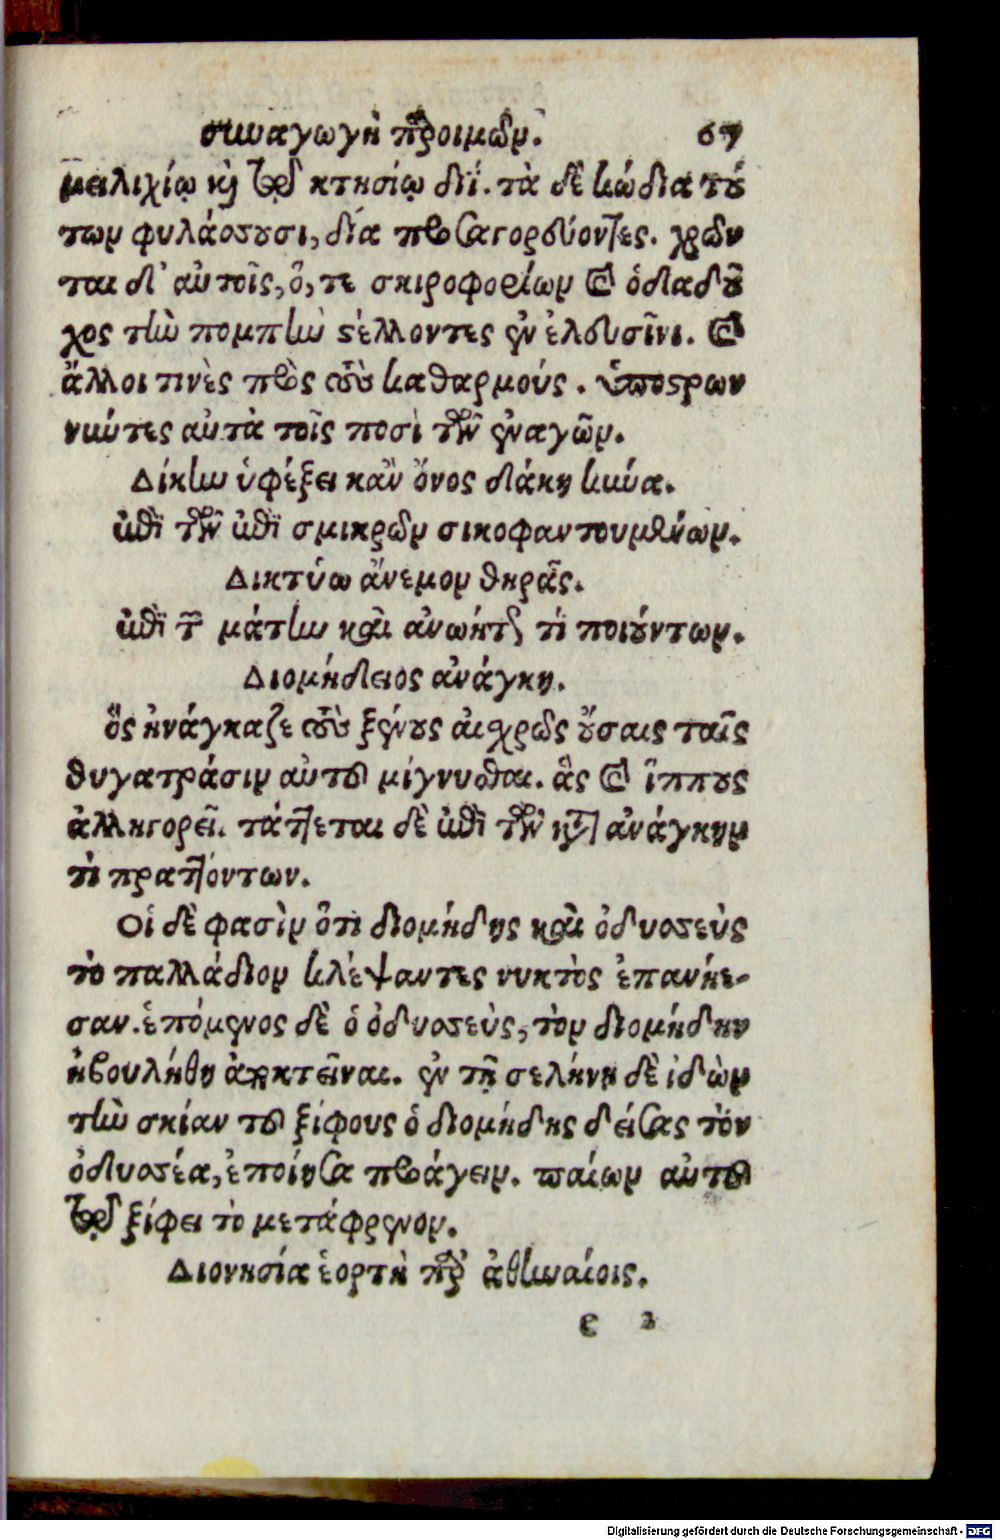 συναγωγὴ παροιμιῶν. 67
μειλιχίῳ καὶ τῷ κτησίῳ διΐ. τὰ δὲ κώδια τού
των φυλάσσουσι, δία προσαγορεύοντες. χρῶν
ται δ' αὐτοῖς, ὅ, τε σκιροφορίων καὶ ὁ δᾳδοῦ
χος τὴν πομπὴν στέλλοντες ἐν ἐλευσῖνι. καὶ
ἄλλοι τινὲς πρὸς τοὺς καθαρμούς. ὑποστρων
νύντες αὐτὰ τοῖς ποσὶ τῶν ἐναγῶν.
Δίκην ὑφέξει κἂν ὄνος δάκῃ κύνα.
ἐπὶ τῶν ἐπὶ σμικρῶν σικοφαντουμένων.
Δικτύω ἄνεμον θηρᾷς.
ἐπὶ τῶν μάτην καὶ ἀνωήτως τὶ ποιούντων.
Διομήδειος ἀνάγκη.
ὃς ἠνάγκαζε τοὺς ξένους αἰχρῶς οὔσαις ταῖς
θυγατράσιν αὐτοῦ μίγνυσθαι. ἃς καὶ ἵππους
ἀλληγορεῖ. τάττεται δὲ ἐπὶ τῶν κατ' ἀνάγκην
τὶ πραττόντων.
Οἱ δὲ φασὶν ὅτι διομήδης καὶ ὀδυσσεὺς
τὸ παλλάδιον κλέψαντες νυκτὸς ἐπανῄε-
σαν. ἑπόμενος δὲ ὁ ὀδυσσεὺς, τὸν διομήδην
ἠβουλήθη ἀποκτεῖναι. ἐν τῇ σελήνῃ δὲ ἰδὼν
τὴν σκίαν τοῦ ξίφους ὁ διομήδης δείσας τὸν
ὀδυσσέα, ἐποίησα προάγειν. παίων αὐτοῦ
τῷ ξίφει τὸ μετάφρενον.
Διονησία ἑορτὴ παρ' ἀθηναίοις.
ε 2
Digitalisierung gefördert durch die Deutsche Forschungsgemeinschaft - DFG